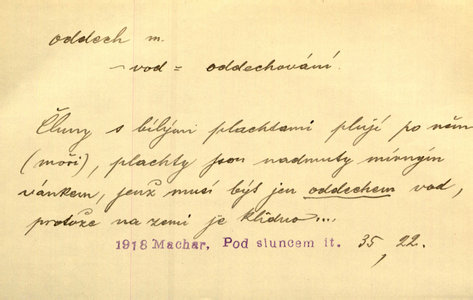 oddech m.
~ vod = oddechování.
Čluny s bílými plachtami plují po něm
(moři), plachty jsou nadmuty mírným
vánkem, jenž musí býti jen oddechem vod,
protože na zemi je klidno...
1918 Machar, Pod sluncem it. 35, 22.